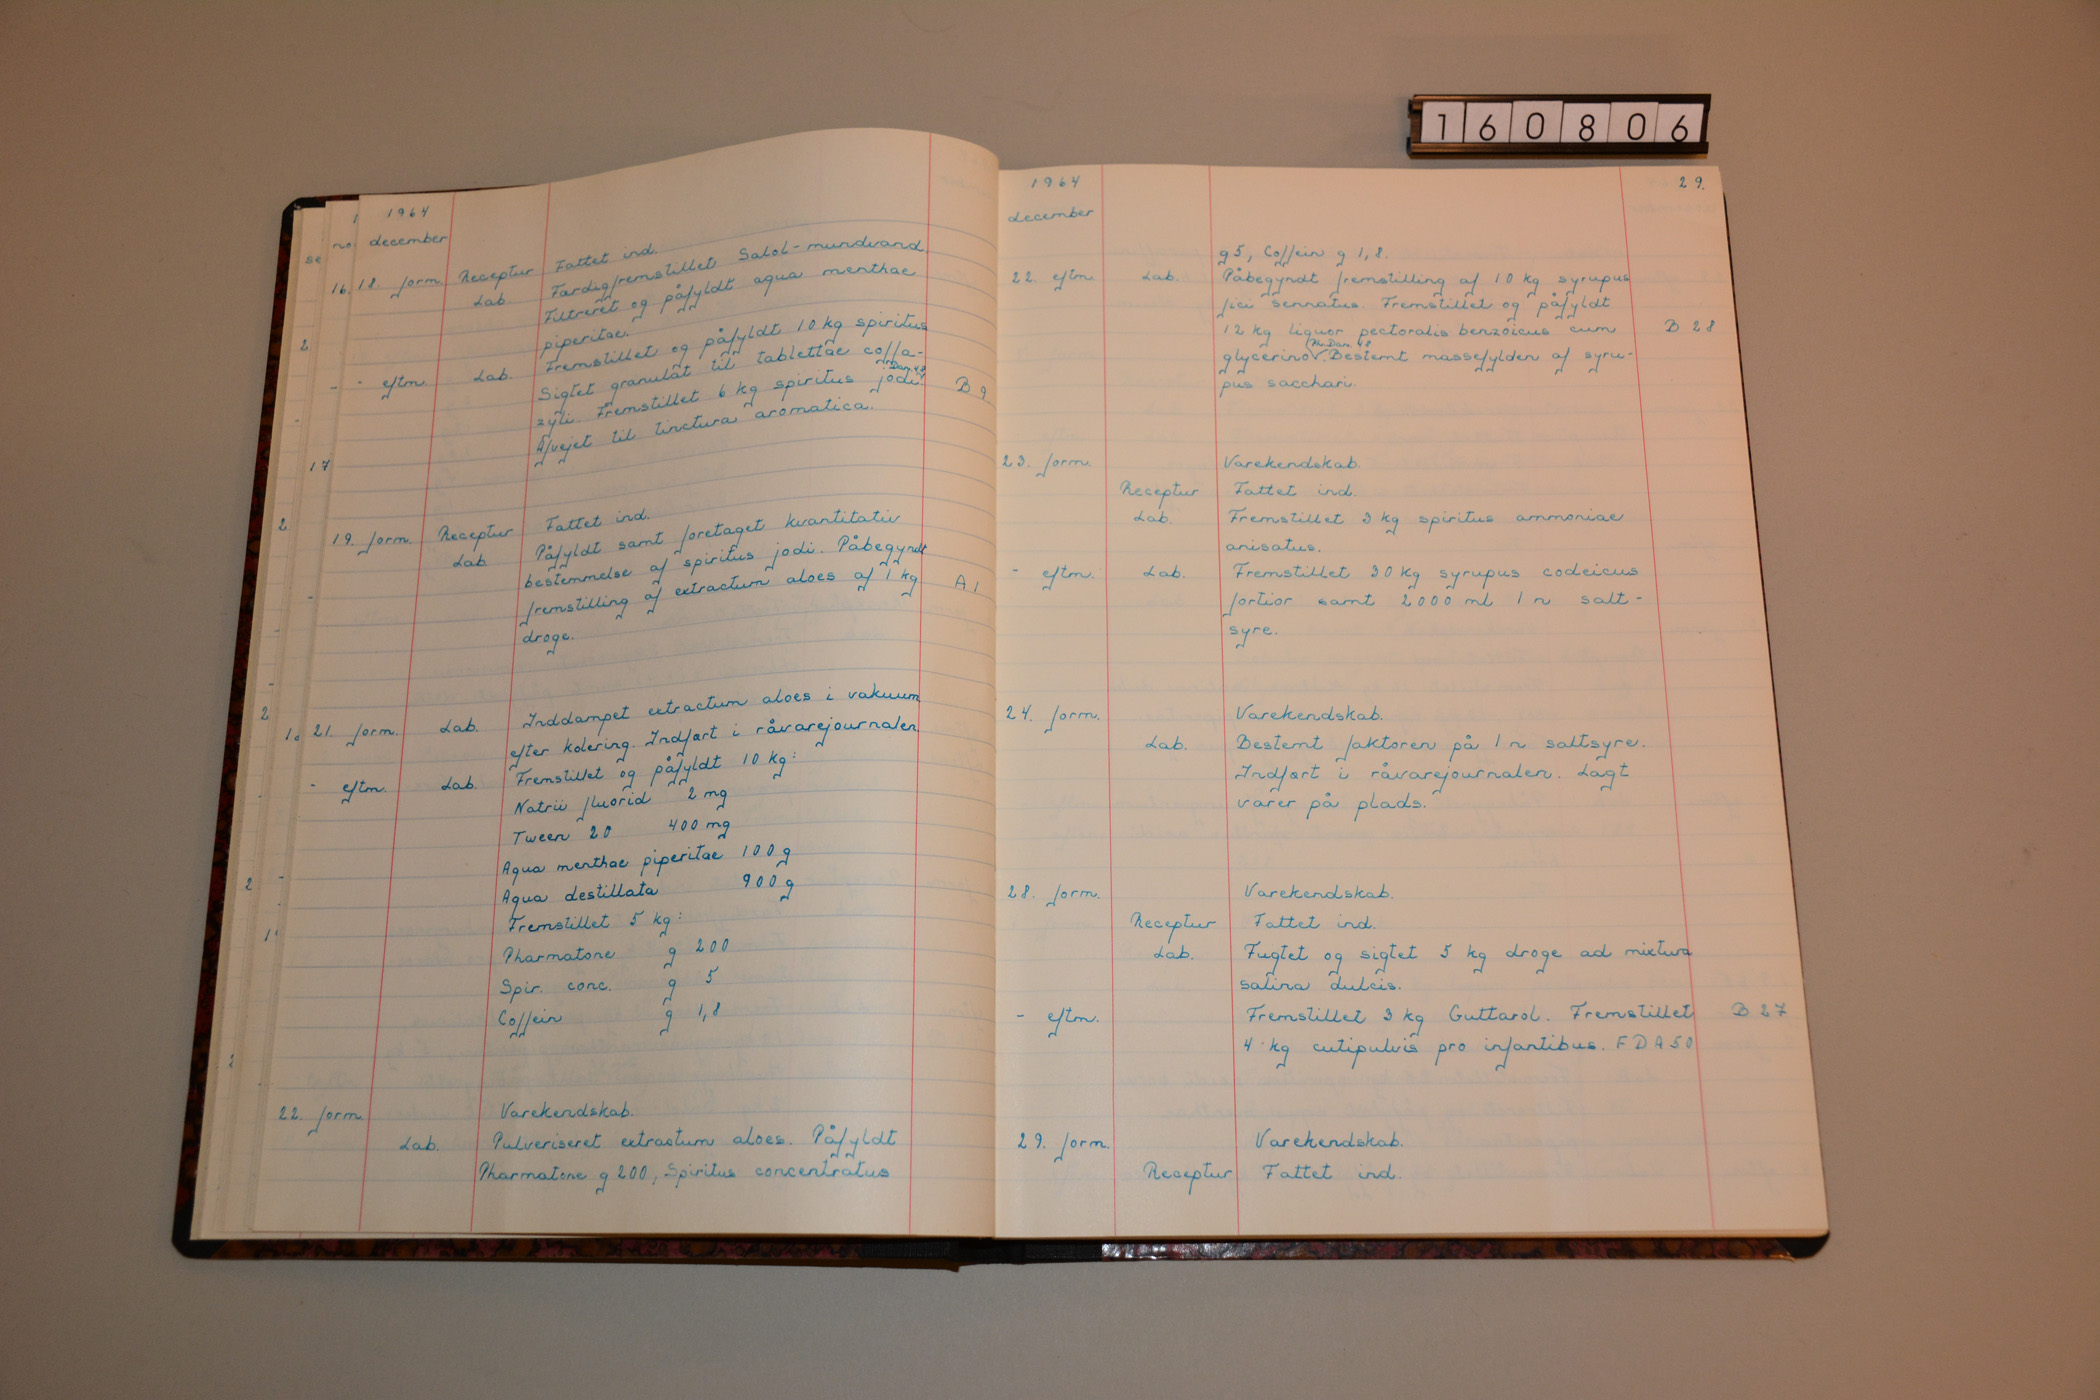 160806
1964
december
18. form. Receptur Fattet ind.
Lab. Færdigfremstillet Salol-mundvand.
Filtreret og påfyldt aqua menthae
piperitae.
Fremstillet og påfyldt 10 kg spiritus
- eftm. Lab. Sigtet granulat til tablettae coffa-
zyli. Fremstillet 6 kg spiritus jodi. Dan. 48 B 9
Afvejet til tinctura aromatica.
19. form. Receptur Fattet ind.
Lab. Påfyldt samt foretaget kvantitativ
bestemmelse af spiritus jodi. Påbegyndt
fremstilling af extractum aloes af 1 kg A 1
droge.
21. form. Lab. Inddampet extractum aloes i vakuum
efter kolering. Indført i råvarejournalen
- eftm. Lab. Fremstillet og påfyldt 10 kg:
Natrii fluorid 2 mg
Tween 20 400 mg
Aqua menthae piperitae 100 g
Aqua destillata 900 g
Fremstillet 5 kg:
Pharmatone g 200
Spir. conc. g 5
Coffein g 1,8
22. form. Varekendskab.
Lab. Pulveriseret extractum aloes. Påfyldt
Pharmatone g 200, Spiritus concentratus
1964
29.
december
g 5, Coffein g 1,8.
22. eftm. Lab. Påbegyndt fremstilling af 10 kg syrupus
fici sennatus. Fremstillet og påfyldt
12 kg liquor pectoralis benzoicus cum B 28
Ph. Dan. 48
glycerino √. Bestemt massefylden af syru-
pus sacchari.
23. form. Varekendskab.
Receptur Fattet ind.
Lab. Fremstillet 3 kg spiritus ammoniae
anisatus.
- eftm. Lab. Fremstillet 30 kg syrupus codeicus
fortior samt 2000 ml 1 n salt-
syre.
24. form. Varekendskab.
Lab. Bestemt faktoren på 1 n saltsyre.
Indført i råvarejournalen. Lagt
varer på plads.
28. form. Varekendskab.
Receptur Fattet ind.
Lab. Fugtet og sigtet 5 kg droge ad mixtura
salina dulcis.
- eftm. Fremstillet 3 kg Guttarol. Fremstillet B 27
4 kg cutipulvis pro infantibus. FDA50
29. form. Varekendskab.
Receptur Fattet ind.